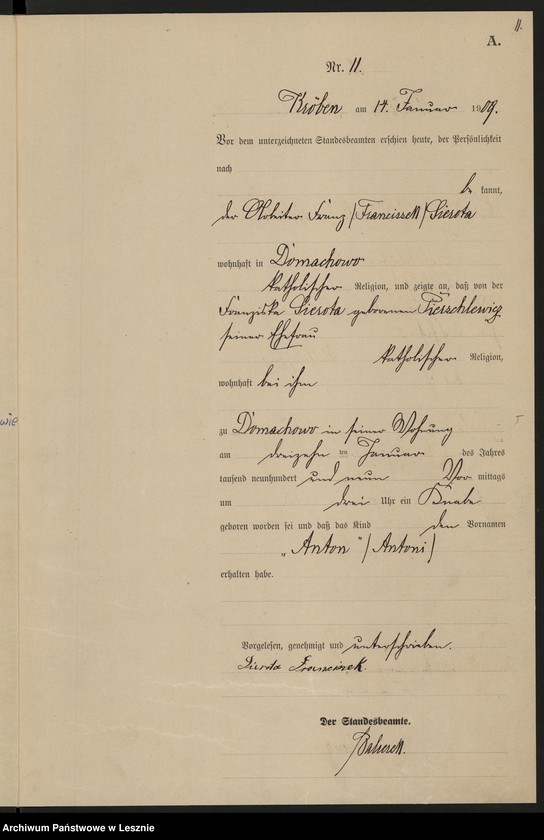 11.
A.
Nr. 11.
Kröben am 14. Januar 1909.
Vor dem unterzeichneten Standesbeamten erschien heute, der Persönlichkeit
nach
be kannt,
der Arbeiter Franz (Franciszek) Sierota
wohnhaft in Domachowo
katholischer Religion, und zeigte an, daß von der
Franziska Sierota geborenen
seiner Ehefrau
katholischer Religion,
wohnhaft bei ihm
wie
zu Domachowo in seiner Wohnung
am dreizehn ten Januar des Jahres
tausend neunhundert und neun Vor mittags
um drei Uhr ein Knabe
geboren worden sei und daß das Kind den Vornamen
„Anton“ (Antoni)
erhalten habe.
Vorgelesen, genehmigt und unterschrieben.
Sierota Franciszek.
Der Standesbeamte.
Archiwum Państwowe w Lesznie